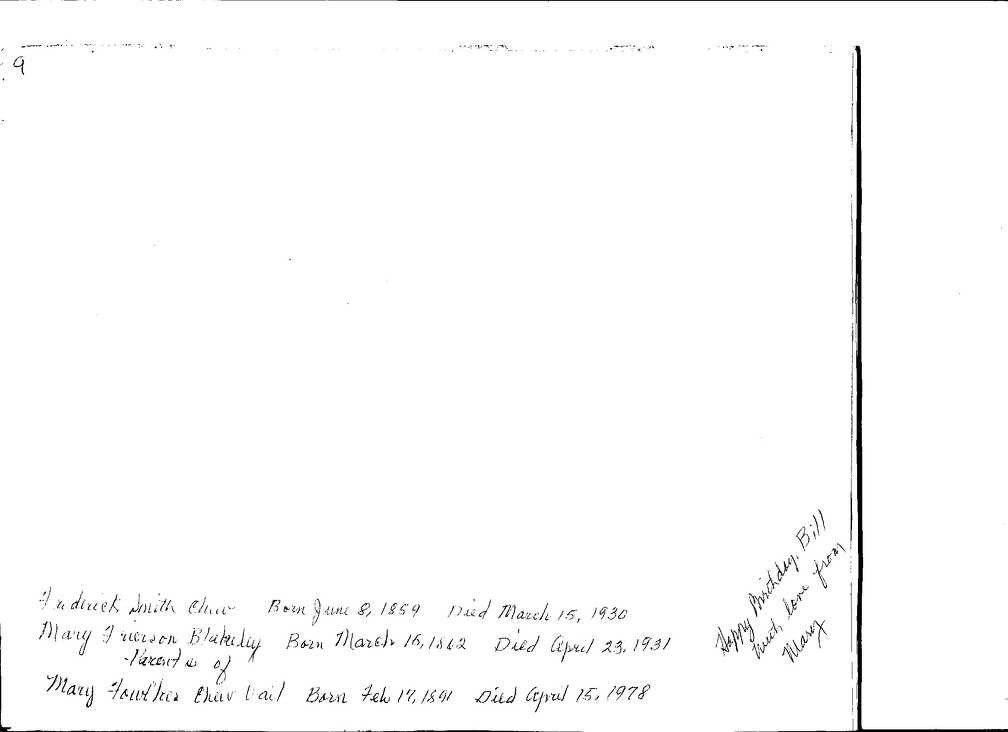 9
Frederick Smith Chew Born June 8, 1859 Died March 15, 1930
Mary Frierson Blakeley Born March 16, 1862 Died April 23, 1931
Parents of
Mary Fowlkes Chew Vail Born Feb 17, 1891 Died April 15, 1978
Happy Birthday, Bill
much love from
Mary